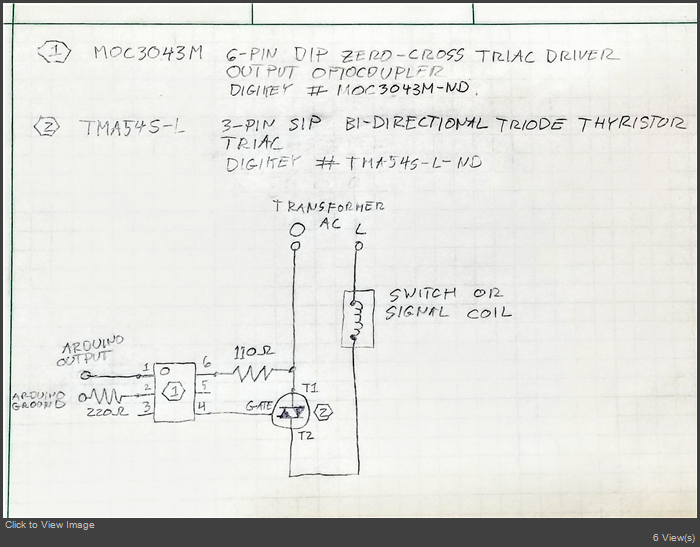 1 MOC3043M 6-PIN DIP ZERO-CROSS TRIAC DRIVER
OUTPUT OPTOCOUPLER
DIGIKEY # MOC3043M-ND.
2 TMA54S-L 3-PIN SIP BI-DIRECTIONAL TRIODE THYRISTOR
TRIAC
DIGIKEY # TMA54S-L-ND
TRANSFORMER
AC
O L
SWITCH OR
SIGNAL COIL
ARDUINO
OUTPUT
ARDUINO
GROUND
220Ω
1
2
3
1
6
5
4
110Ω
GATE
T1
2
T2
Click to View Image
6 View(s)